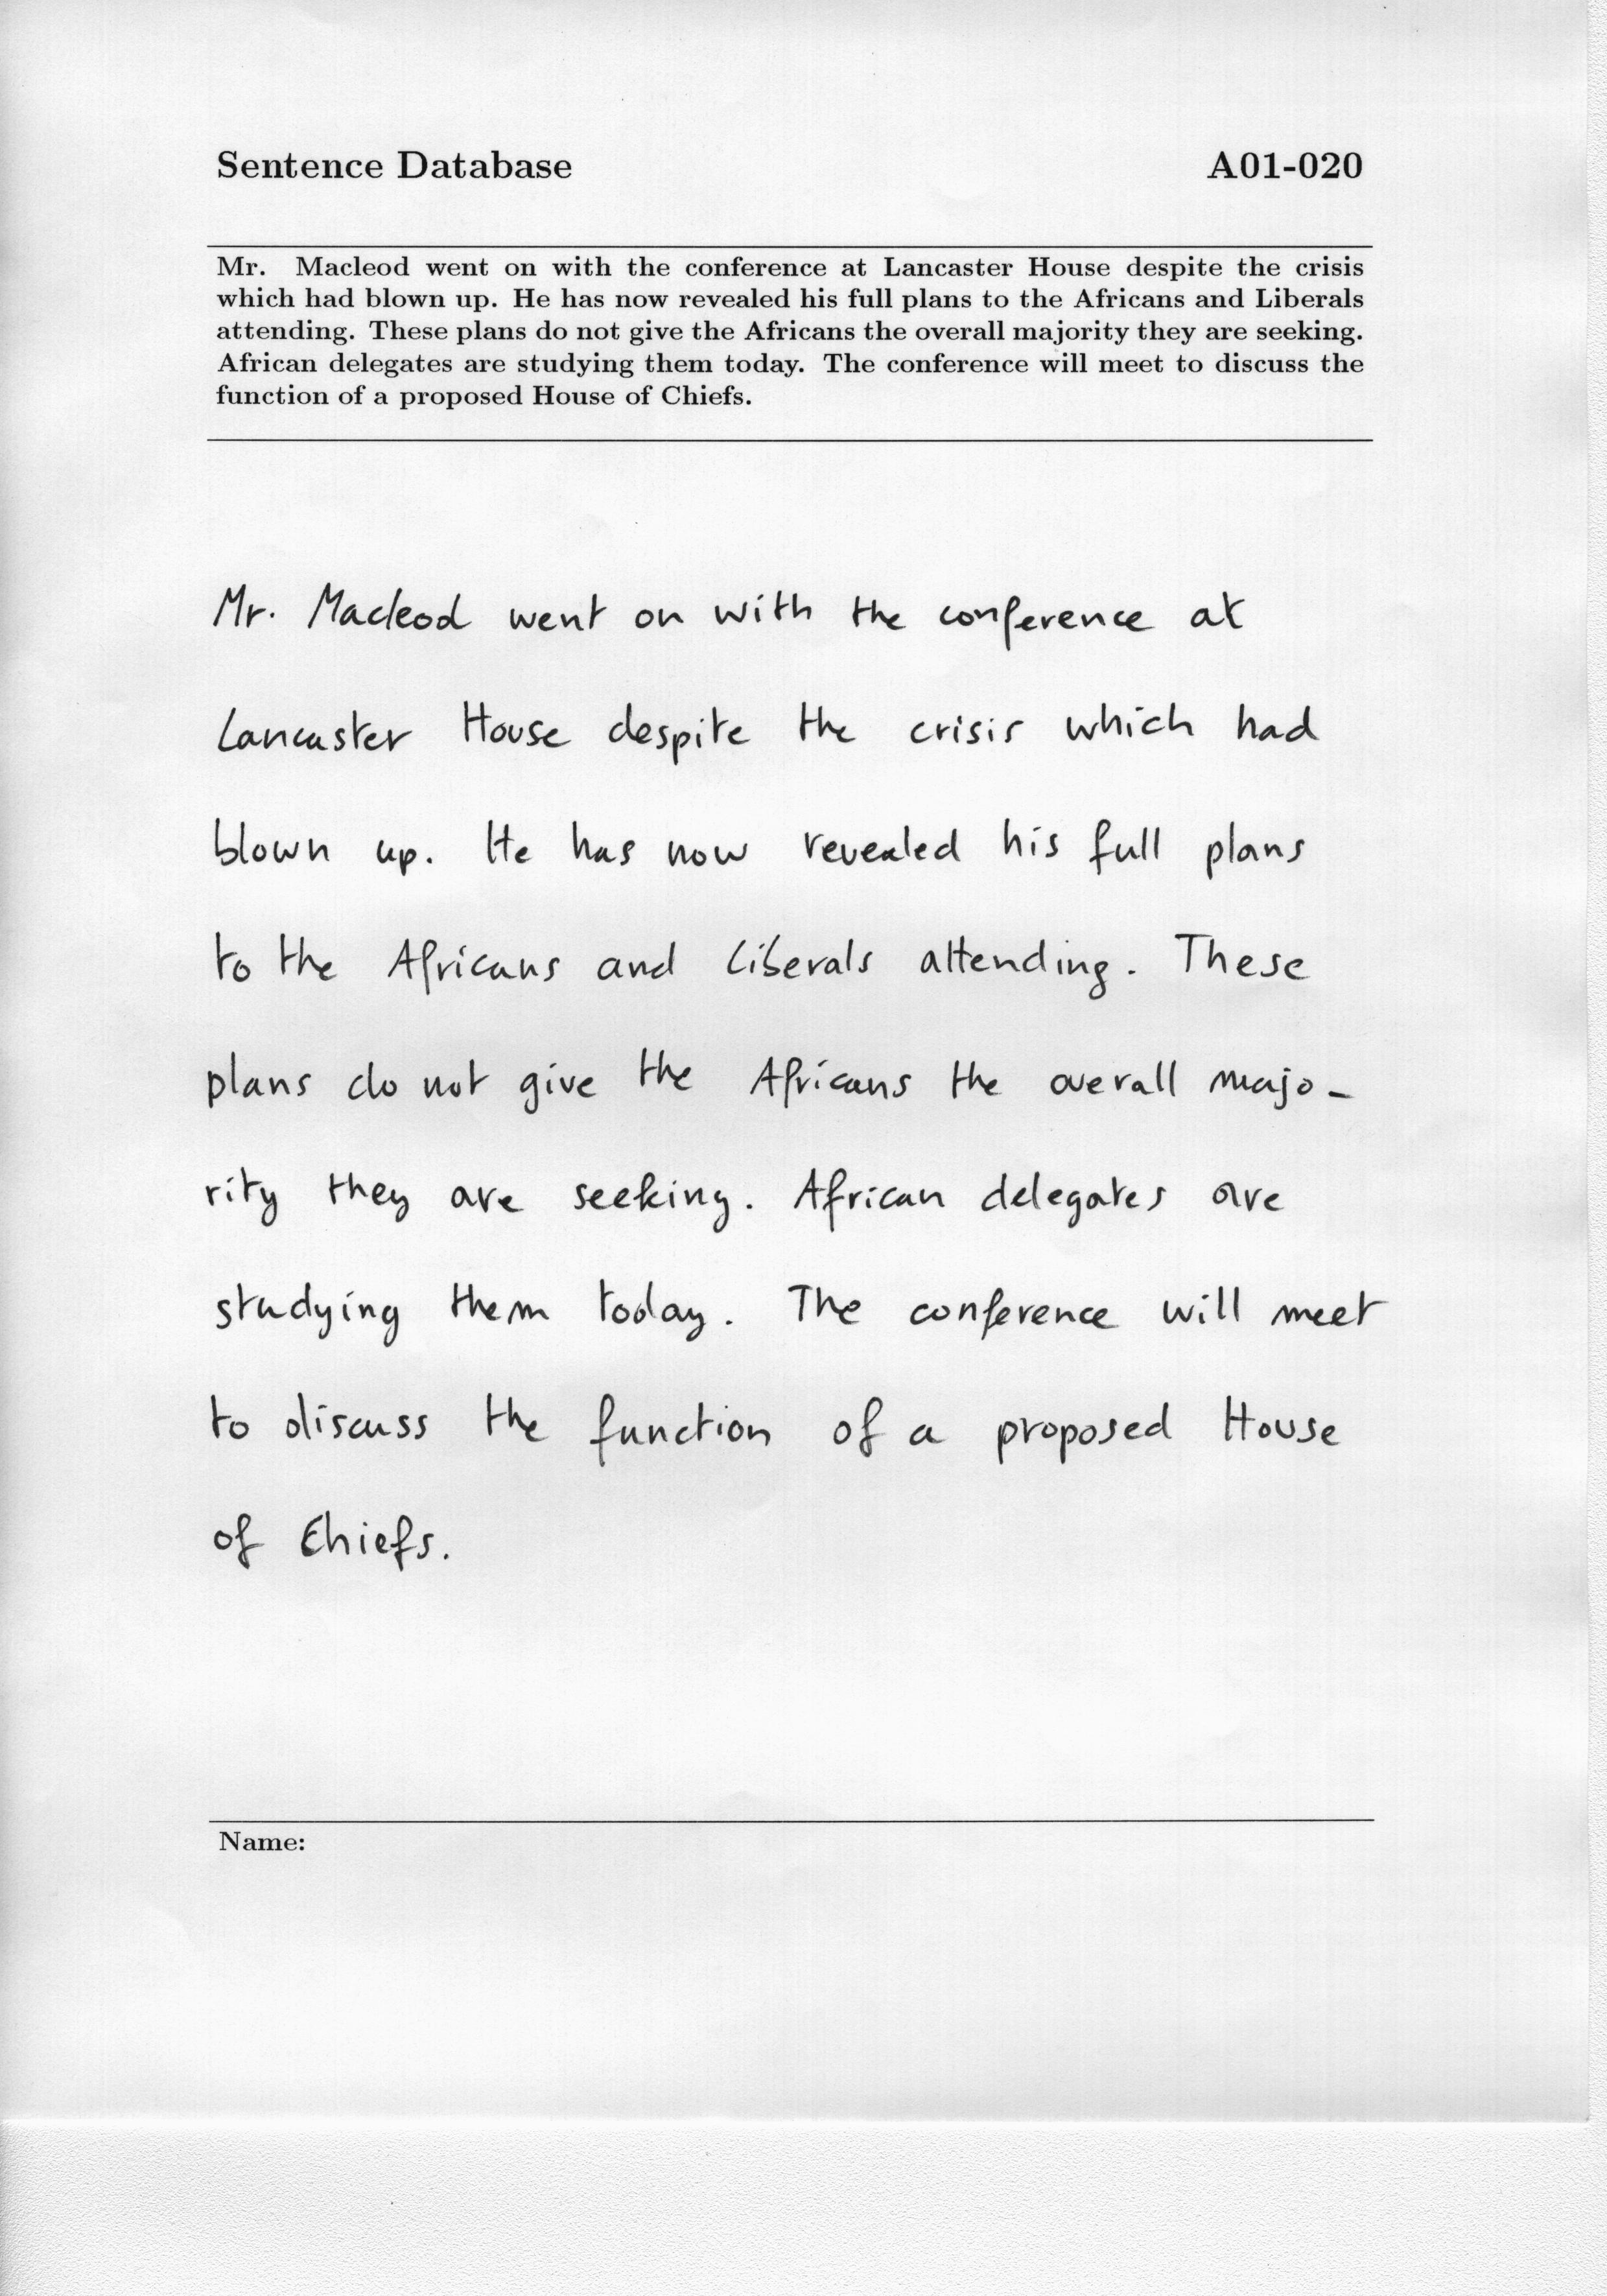 Sentence Database A01-020
Mr. Macleod went on with the conference at Lancaster House despite the crisis
which had blown up. He has now revealed his full plans to the Africans and Liberals
attending. These plans do not give the Africans the overall majority they are seeking.
African delegates are studying them today. The conference will meet to discuss the
function of a proposed House of Chiefs.
Mr. Macleod went on with the conference at
Lancaster House despite the crisis which had
blown up. He has now revealed his full plans
to the Africans and Liberals attending. These
plans do not give the Africans the overall majo-
rity they are seeking. African delegates are
studying them today. The conference will meet
to discuss the function of a proposed House
of Chiefs.
Name: